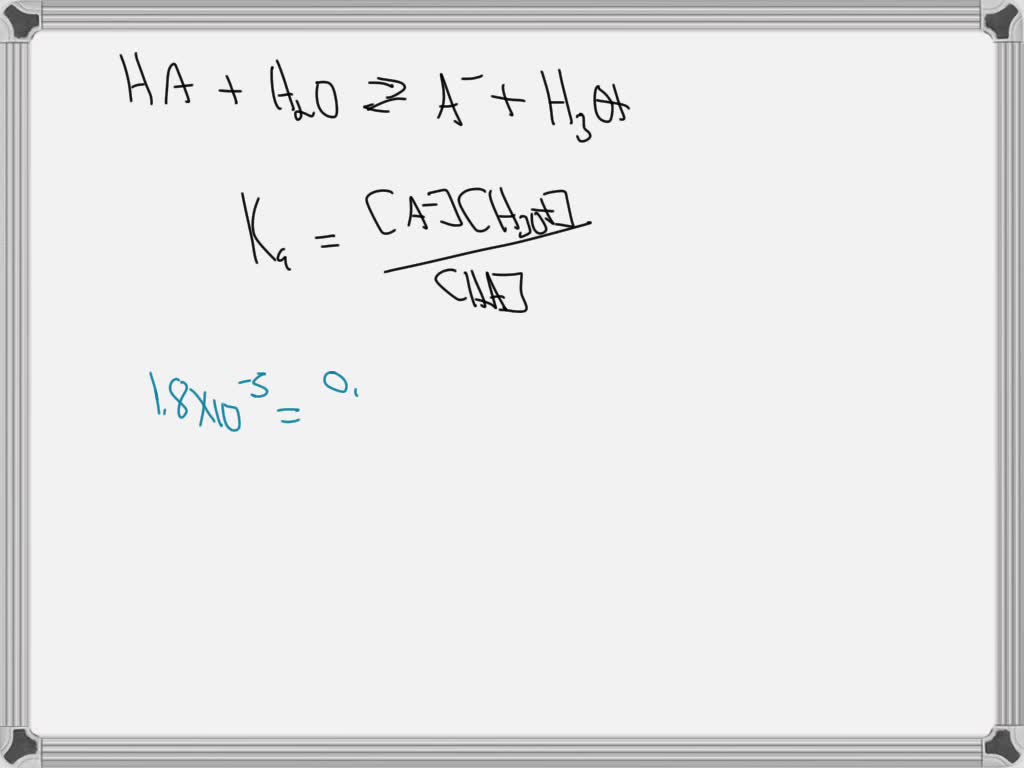 HA + H₂O ⇌ A⁻ + H₃O+
Kₐ = [A⁻][H₃O+]
[HA]
1.8×10⁻⁵ = 0.